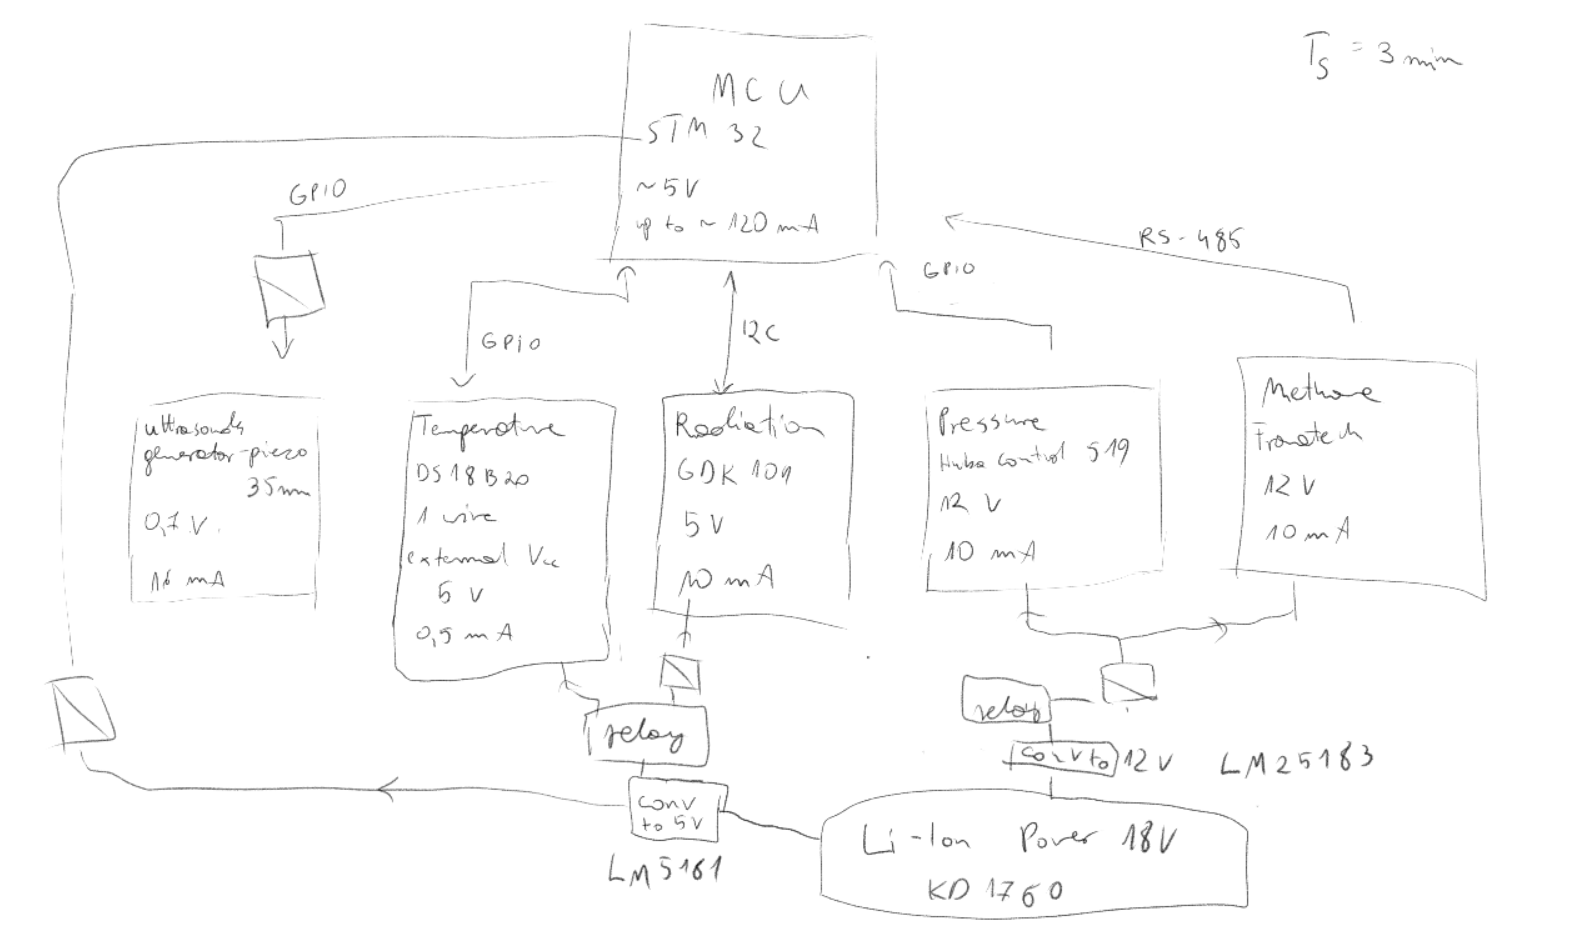 MCU
STM 32
~5V
up to ~ 120 mA
Ts = 3 min
GPIO
RS-485
GPIO
GPiO
I2C
ultrasounds
generator-piezo
35mm
0,7 V
16 mA
Temperature
DS18B20
1 wire
external Vcc
5 V
0,5 mA
Radiation
GDK 101
5 V
10 mA
Pressure
Huba Control 519
12 V
10 mA
Methane
Franatech
12 V
10 mA
relay
relay
conv to 12V
LM25183
conv
to 5V
LM5161
Li-Ion Power 18V
KD 1760